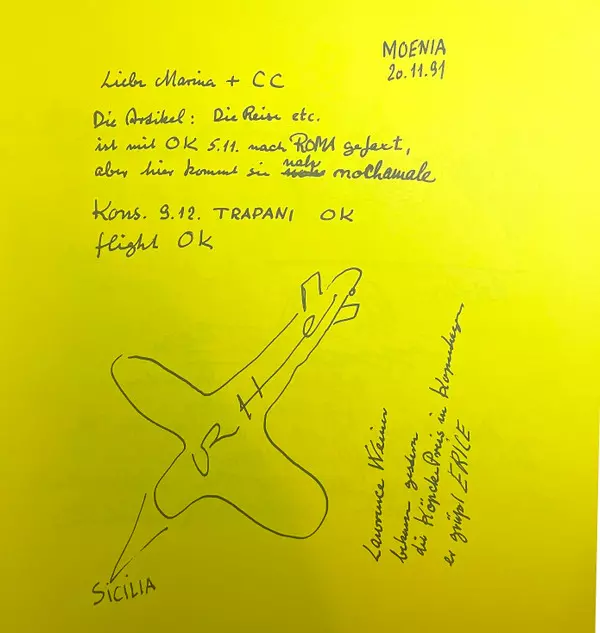 MOENIA
20.11.91
Liebe Marina + CC
Die Artikel: Die Reise etc.
ist mit OK 5.11. nach ROMA gefaxt,
aber hier kommt sie nochamale
Kons. 9.12. TRAPANI OK
flight OK
SICILIA
Lawrence Weiner
bekam gestern
die Köpcke Preis in Kopenhagen
er grüßt ERICE